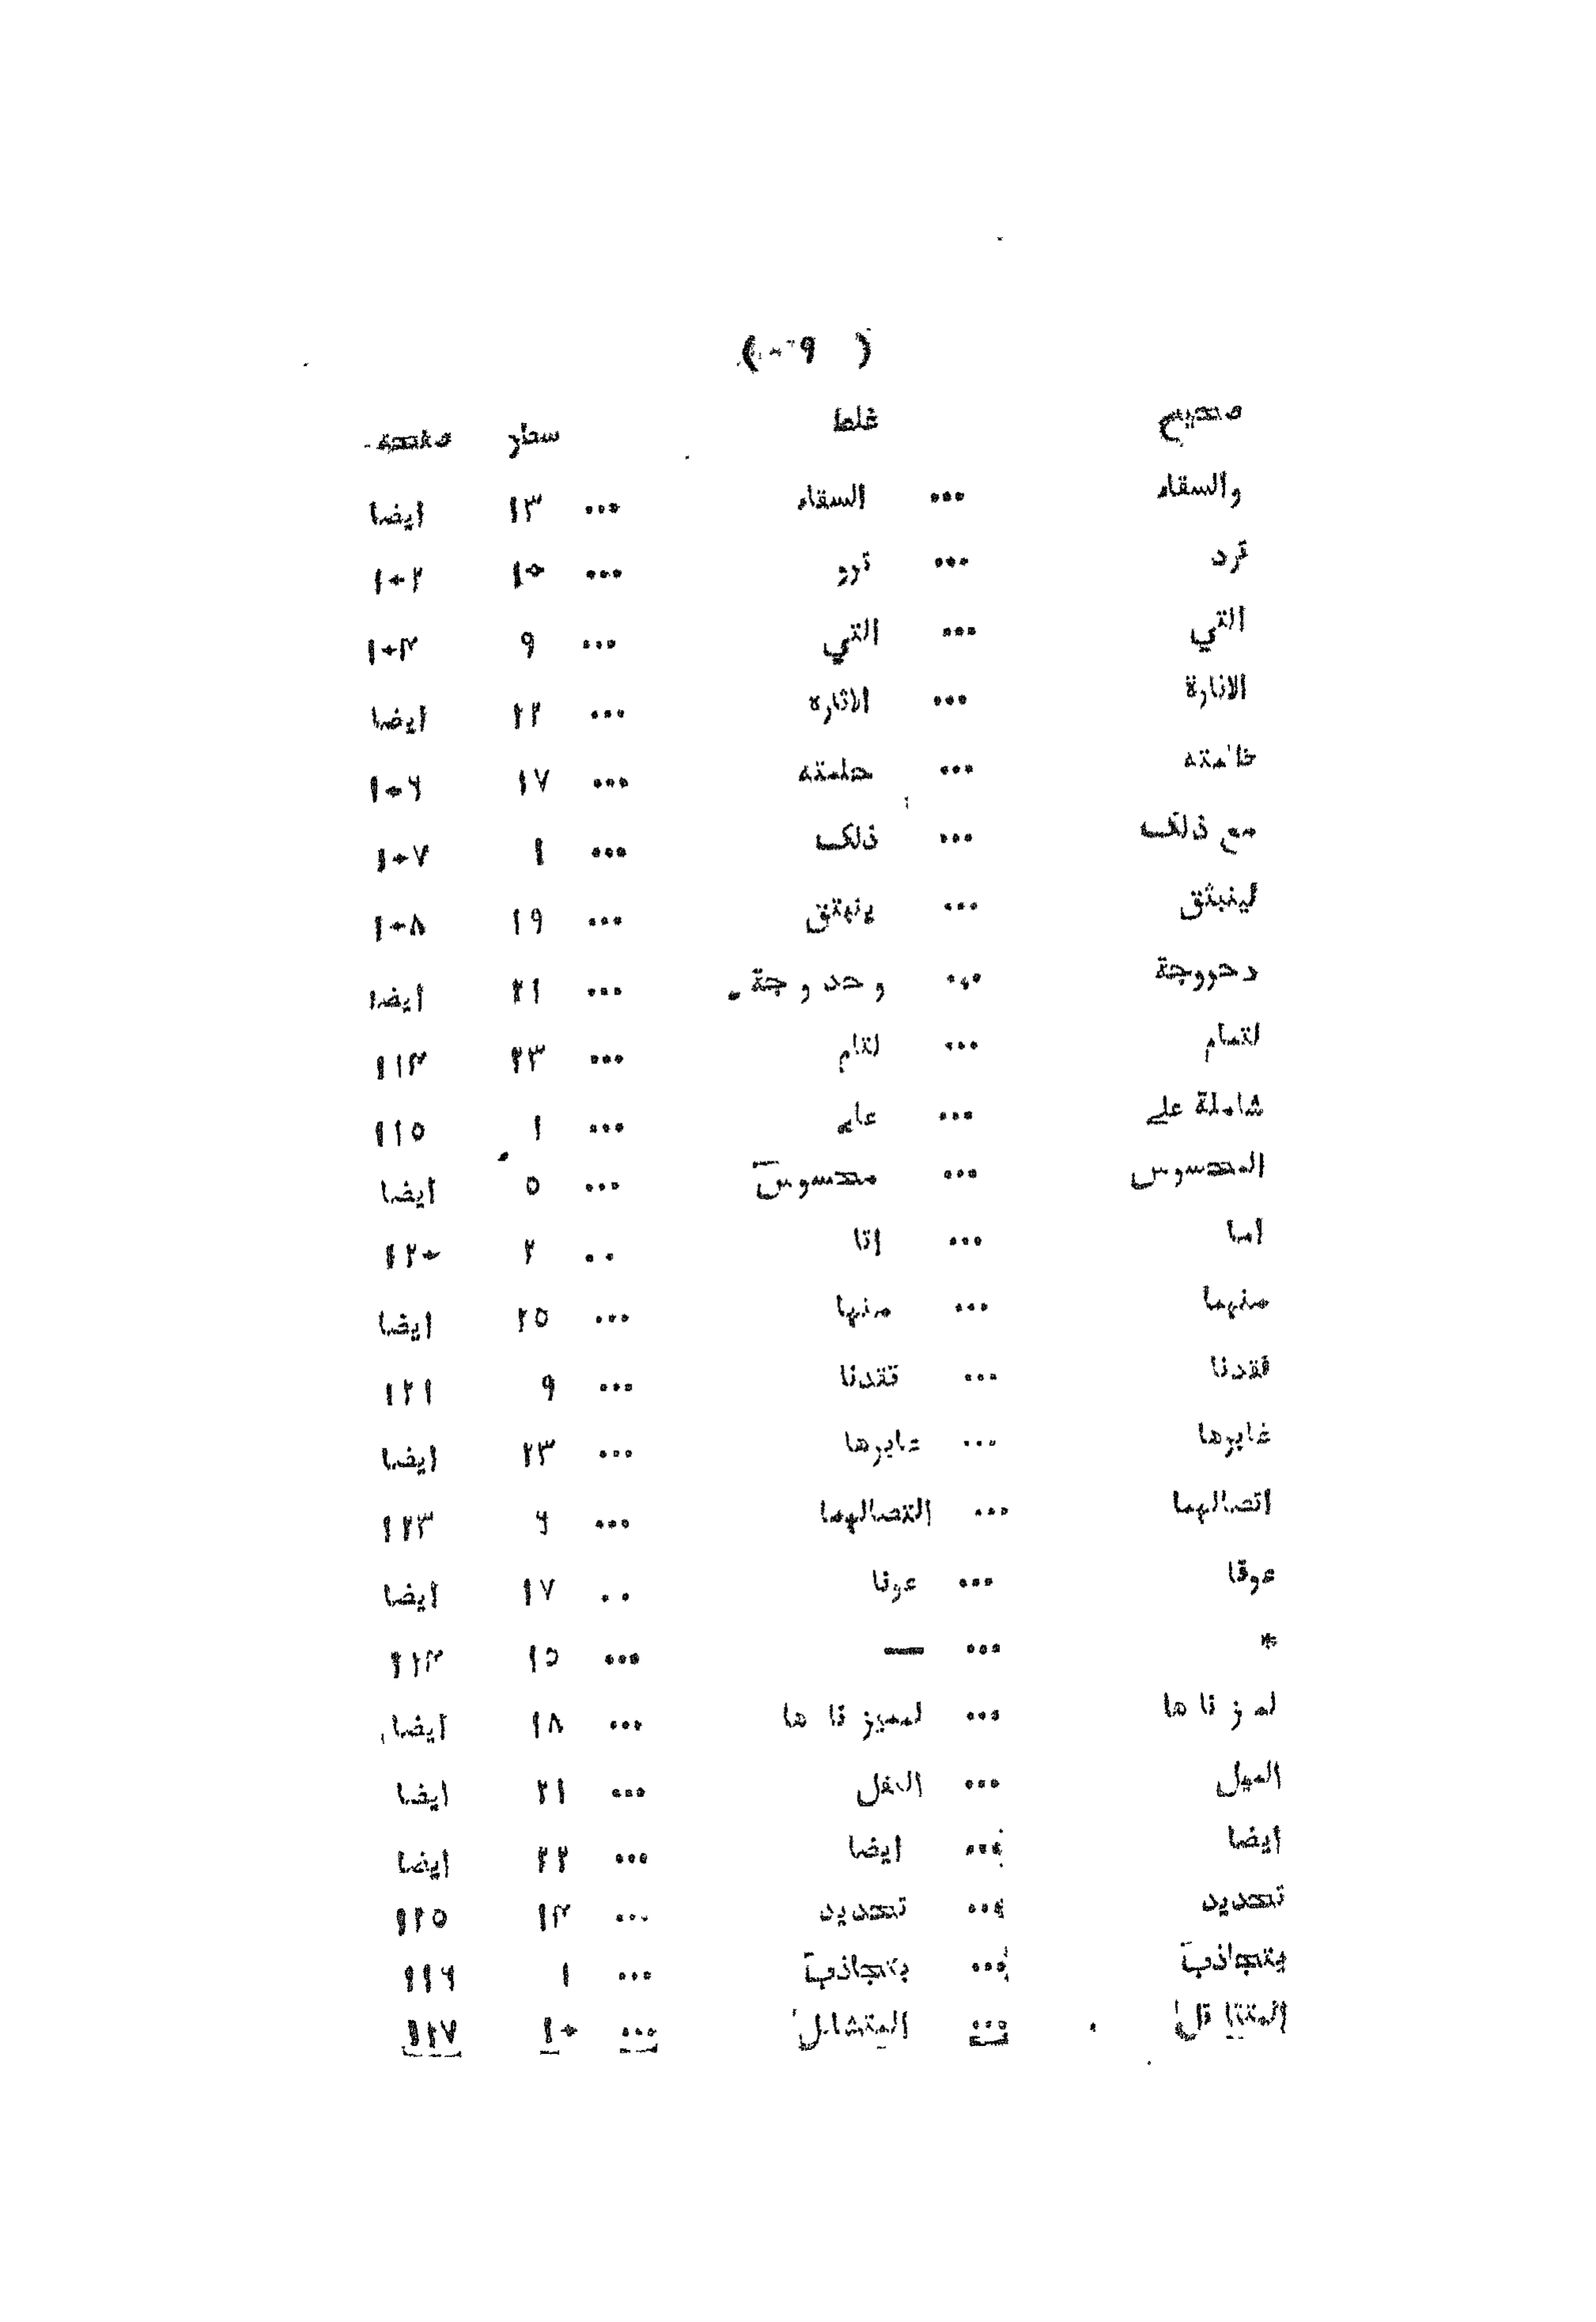 ( ٩ )
صحيح غلط سطر صفحه
والسقاء ... السقاء ... ١٣ ايضا
ترد ... ترو ... ١٠ ١٠٢
التي ... التي ... ٩ ١٠٤
الانارة ... الاثاره ... ٢٢ ايضا
خالمته ... حلمته ... ١٧ ١٠٦
مع ذلك ... ذلك ... ١ ١٠٧
لينبثق ... ينبتق ... ١٩ ١٠٨
دحووجة ... وحدوجة ... ٢١ ايضا
لتمام ... لتام ... ٢٣ ١١٤
شاملة على ... على ... ١ ١١٥
المحسوس ... محسوس ... ٥ ايضا
اما ... انا .. ٢ ١٢٠
منهما ... منها ... ٢٥ ايضا
فقدنا ... تقدنا ... ٩ ١٢١
غايرها ... عايرها ... ٢٣ ايضا
اتصالهما ... التصالهما ... ٦ ١٢٣
عوقا ... عوفا .. ١٧ ايضا
* ... — ... ١٥ ١٢٤
لمز نا ها ... لمميز نا ها ... ١٨ ايضا
الميل ... النفل ... ٢١ ايضا
ايضا ... ايضا ... ٢٢ ايضا
تحديد ... تحديد ... ١٤ ١٢٥
يتجاذب ... بتجاذب ... ١ ١١٦
المتثاقل ... المتشامل ... ١٠ ١٢٧